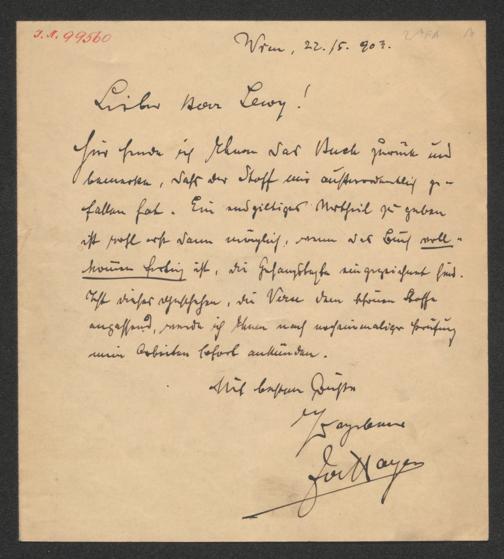 J.N. 99560
Wien, 22./5. 903.
Lieber Herr Lewy!
Hier sende ich Ihnen das Buch zurück und
bemerke, daß der Stoff mir außerordentlich ge-
fallen hat. Ein endgiltiges Urtheil zu geben
ist wohl erst dann möglich, wenn das Buch voll-
kommen fertig ist, die Gesangstexte eingezeichnet sind.
Ist dieses geschehen, die Verse dem schönen Stoffe
angepassend, werde ich Ihnen nach nochmaliger Prüfung
mein Arbeiten sofort ankünden.
Mit besten Grüßen
Ergebener
Jos Hayer